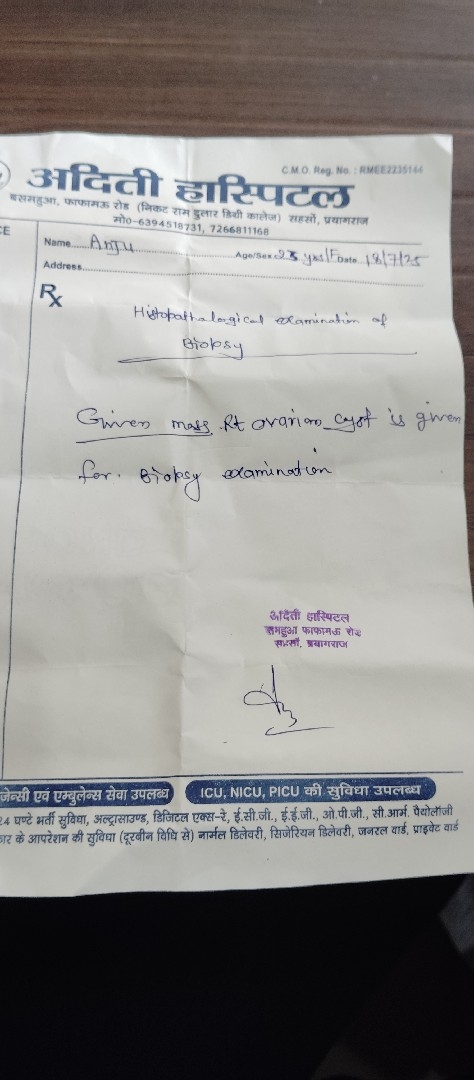 C.M.O. Reg. No. : RMEE2235144
अदिती हास्पिटल
बसमहुआ, फाफामऊ रोड (निकट राम दुलार डिग्री कालेज) सहसों, प्रयागराज
मो०-6394518731, 7266811168
Name Anju Age/Sex 23 yrs/F Date 18/7/25
Address
Rx
Histopathalorgical examination of
Biopsy
Given mass Rt ovarian cyst is given
for. Biopsy examination
अदिती हास्पिटल
समहुआ फाफामऊ रोड
सहसों, प्रयागराज
जेन्सी एवं एम्बुलेन्स सेवा उपलब्ध ICU, NICU, PICU की सुविधा उपलब्ध
24 घण्टे भर्ती सुविधा, अल्ट्रासाउण्ड, डिजिटल एक्स-रे, ई.सी.जी., ई.ई.जी., ओ.पी.जी., सी.आर्म. पैथोलॉजी
कार के आपरेशन की सुविधा (दूरबीन विधि से) नार्मल डिलेवरी, सिजेरियन डिलेवरी, जनरल वार्ड, प्राइवेट वार्ड